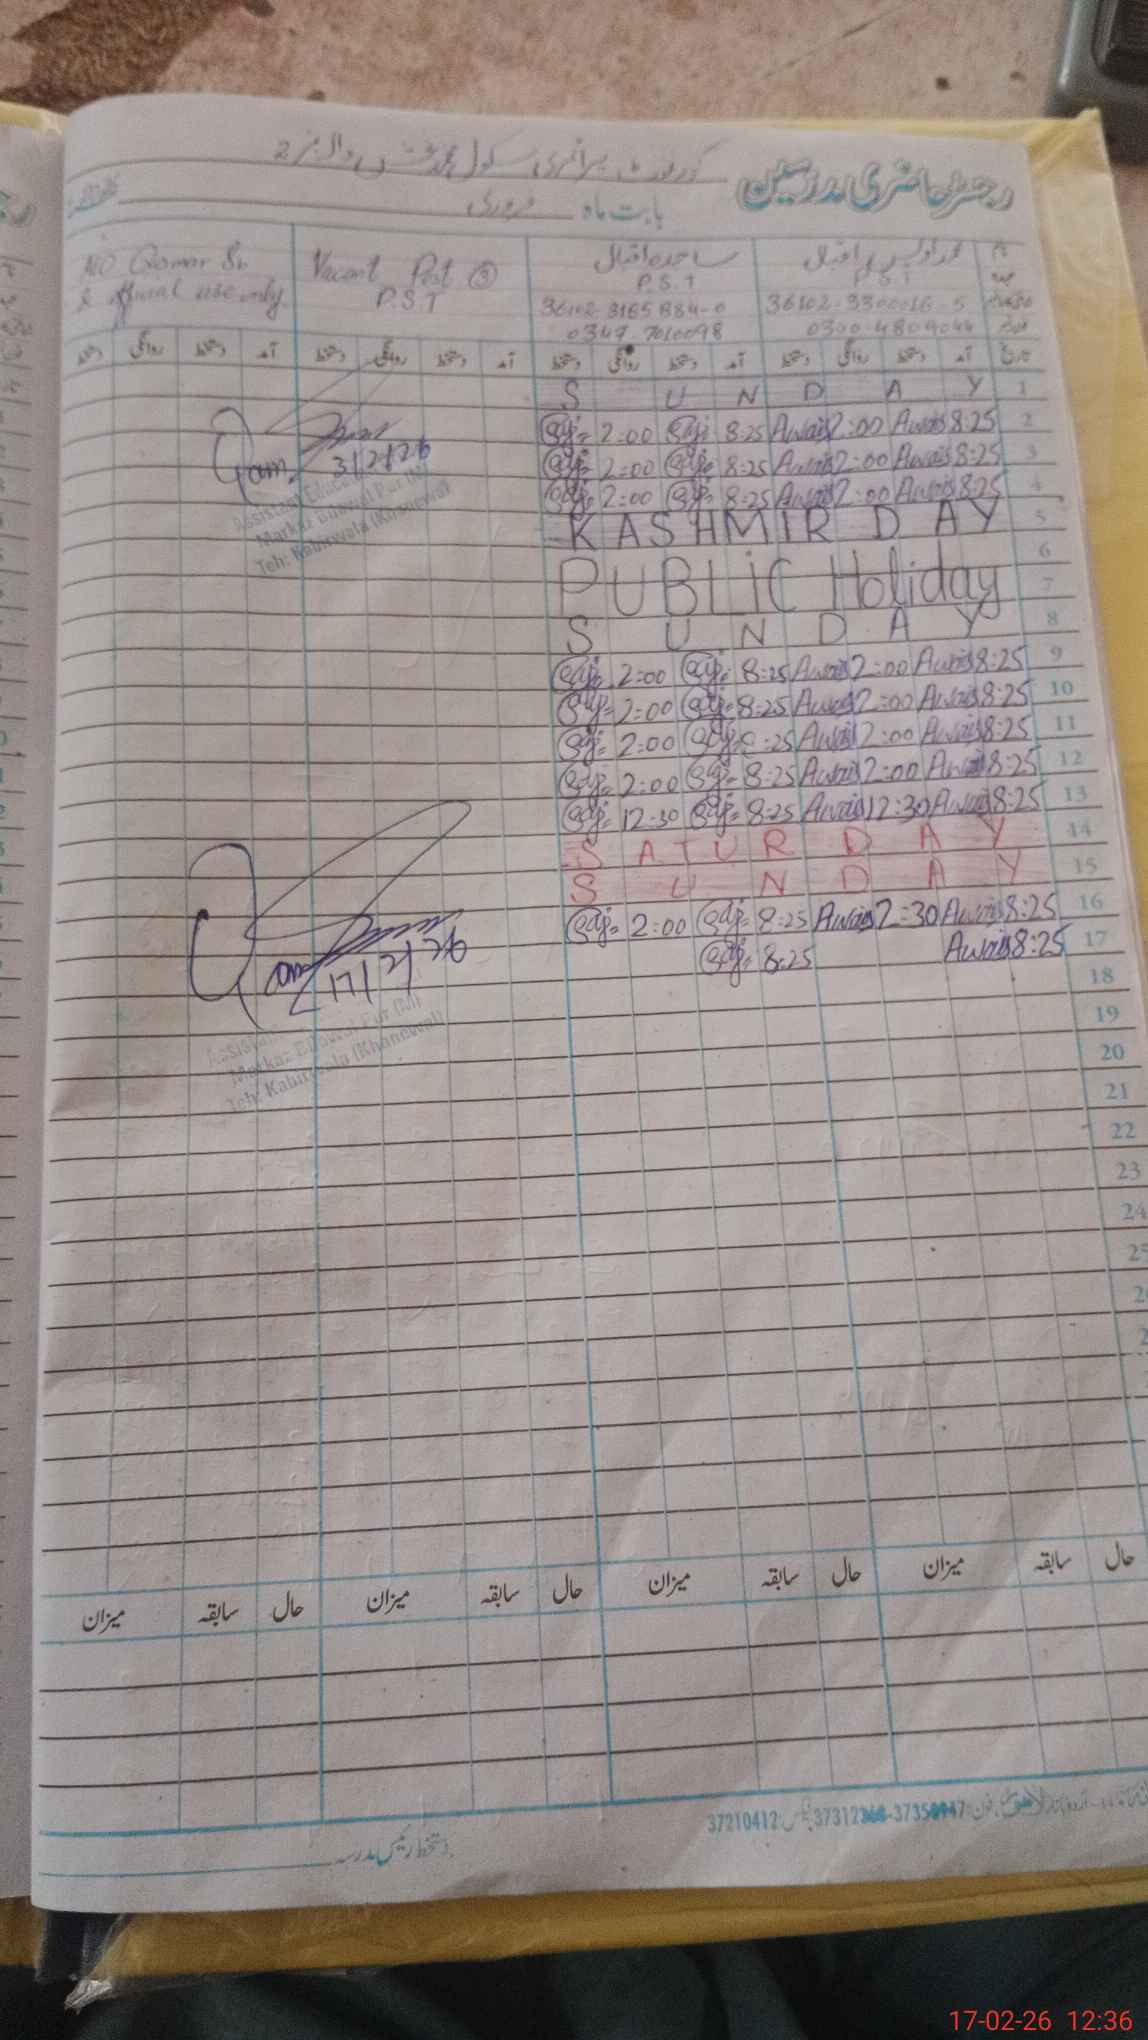 رجسٹر حاضری مدرسین گورنمنٹ پرائمری سکول
بابت ماہ فروری
نام محمد اویس اقبال ساجدہ اقبال Vacant Post NO Qamar Sb
P.S.T P.S.T & official use only
36102-3300016-5 36102-8165884-0
0300-4809044 0347-7010098
تاریخ آمد دستخط روانگی دستخط آمد دستخط روانگی دستخط آمد دستخط روانگی دستخط آمد دستخط روانگی دستخط
1 S U N D A Y
2 2:00 8:25 Awais 2:00 Awais 8:25
3 2:00 8:25 Awais 2:00 Awais 8:25
4 2:00 8:25 Awais 2:00 Awais 8:25
3/2/26
Markaz Pur (M)
Teh: Kabirwala (Khanewal)
5 KASHMIR DAY
6 PUBLIC Holiday
7
8 S U N D A Y
9 2:00 8:25 Awais 2:00 Awais 8:25
10 2:00 8:25 Awais 2:00 Awais 8:25
11 2:00 :25 Awais 2:00 Awais 8:25
12 2:00 8:25 Awais 2:00 Awais 8:25
13 12:30 8:25 Awais 12:30 Awais 8:25
14 S A T U R D A Y
15 S U N D A Y
16 2:00 8:25 Awais 2:30 Awais 8:25
17 8:25 Awais 8:25
17/2/26
Markaz Pur (M)
Teh: Kabirwala (Khanewal)
18
19
20
21
22
23
24
حال سابقہ میزان حال سابقہ میزان حال سابقہ میزان حال سابقہ میزان
37210412
دستخط رئیس مدرسہ
17-02-26 12:36